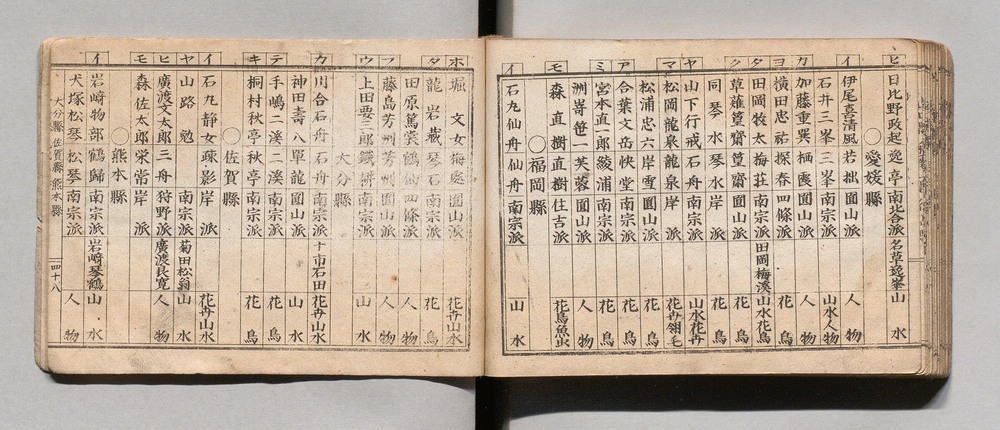 ヒ 日比野政起 逸亭 南北合派 名草逸峯 山水
○愛媛縣
イ 伊尾喜清風 若拙 圓山派 人物
イ 石井三峯 三峯 南宗派 山水人物
カ 加藤重巽 栖霞 圓山派 人物
ヨ 横田忠祐 探春 四條派 花鳥
タ 田岡牧太 梅莊 南宗派 田岡梅溪 山水花鳥
ク 草薙篁齋 篁齋 圓山派 花鳥
同琴水 琴水 岸派 人物
ヤ 山下行戒 行戒 南宗派 山水花卉
マ 松岡龍泉 龍泉 岸派 花卉翎毛
松浦忠六 岸雪 圓山派 花鳥
ア 合葉文岳 快堂 南宗派 花鳥
ミ 宮本直一郎 綾浦 南宗派 花鳥
洲嵜笹一 芙蓉 圓山派 人物
モ 森直樹 直樹 住吉派 花鳥魚虫
○福岡縣
イ 石丸仙舟 仙舟 南宗派 山水
ホ 堀文女 梅處 圓山派 花卉山水
タ 龍岩藏 琴石 南宗派 花鳥
田原篤裳 鶴仙 四條派 人物
フ 藤島芳洲 芳洲 圓山派 人物
ウ 上田要三郎 鐵耕 南宗派 山水
大分縣
カ 川合石舟 石舟 南宗派 十市石田 花卉山水
神田壽八 單龍 圓山派 山水
テ 手嶋二溪 二溪 南宗派 花鳥
キ 桐村秋亭 秋亭 南宗派 花鳥
○佐賀縣
イ 石丸静女 疎影 岸派 花卉山水
ヤ 山路勉 南宗派 菊田松翁 山水
ヒ 廣渡文太郎 三舟 狩野派 廣渡良寛 人物
モ 森佐太郎 栄常 岸派
○熊本縣
イ 岩嵜物部 鶴歸 南宗派 岩嵜琴鶴 山水
犬塚松琴 松琴 南宗派 人物
大分縣 佐賀縣 熊本縣 四十八